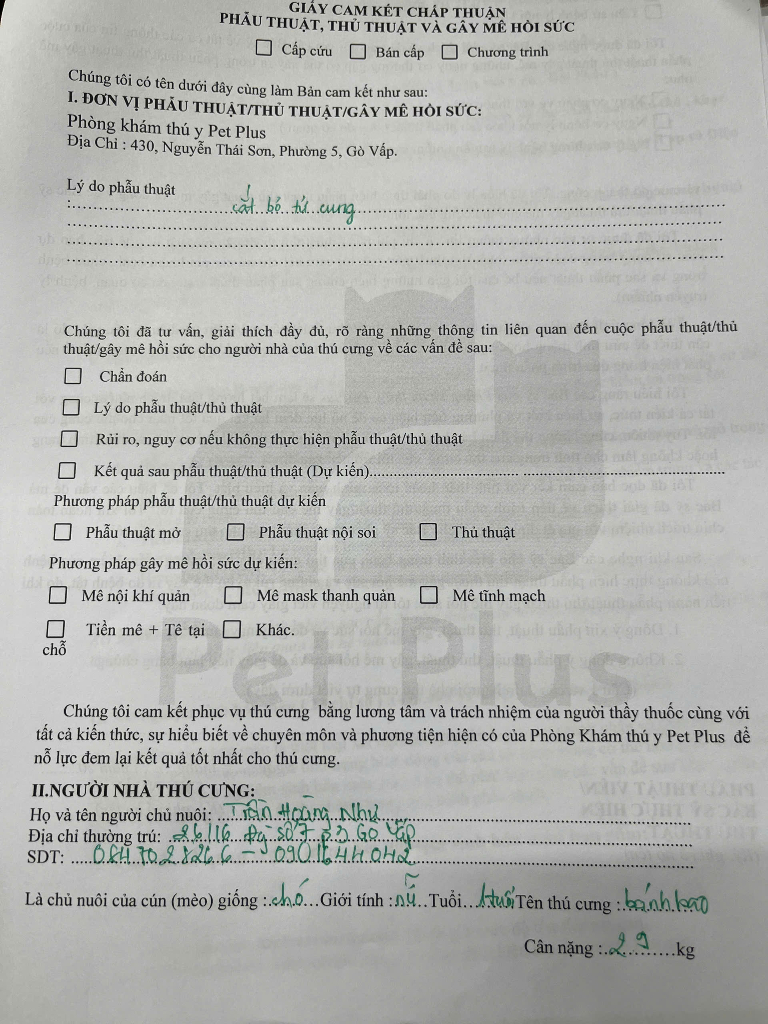 GIẤY CAM KẾT CHẤP THUẬN
PHẪU THUẬT, THỦ THUẬT VÀ GÂY MÊ HỒI SỨC
Cấp cứu Bán cấp Chương trình
Chúng tôi có tên dưới đây cùng làm Bản cam kết như sau:
I. ĐƠN VỊ PHẪU THUẬT/THỦ THUẬT/GÂY MÊ HỒI SỨC:
Phòng khám thú y Pet Plus
Địa Chỉ : 430, Nguyễn Thái Sơn, Phường 5, Gò Vấp.
Lý do phẫu thuật
: cắt bỏ tử cung
Chúng tôi đã tư vấn, giải thích đầy đủ, rõ ràng những thông tin liên quan đến cuộc phẫu thuật/thủ
thuật/gây mê hồi sức cho người nhà của thú cưng về các vấn đề sau:
Chẩn đoán
Lý do phẫu thuật/thủ thuật
Rủi ro, nguy cơ nếu không thực hiện phẫu thuật/thủ thuật
Kết quả sau phẫu thuật/thủ thuật (Dự kiến)
Phương pháp phẫu thuật/thủ thuật dự kiến
Phẫu thuật mở Phẫu thuật nội soi Thủ thuật
Phương pháp gây mê hồi sức dự kiến:
Mê nội khí quản Mê mask thanh quản Mê tĩnh mạch
Tiền mê + Tê tại Khác.
chỗ
Pet Plus
Chúng tôi cam kết phục vụ thú cưng bằng lương tâm và trách nhiệm của người thầy thuốc cùng với
tất cả kiến thức, sự hiểu biết về chuyên môn và phương tiện hiện có của Phòng Khám thú y Pet Plus để
nỗ lực đem lại kết quả tốt nhất cho thú cưng.
II.NGƯỜI NHÀ THÚ CƯNG:
Họ và tên người chủ nuôi: Trần Hoàng Như
Địa chỉ thường trú: 26/16 Đg số 7 p3 Gò Vấp
SDT: 084 702 826 6 - 090 16 44 042
Là chủ nuôi của cún (mèo) giống : chó Giới tính : nữ Tuổi tuổi Tên thú cưng : bánh bao
Cân nặng : 2 9 kg